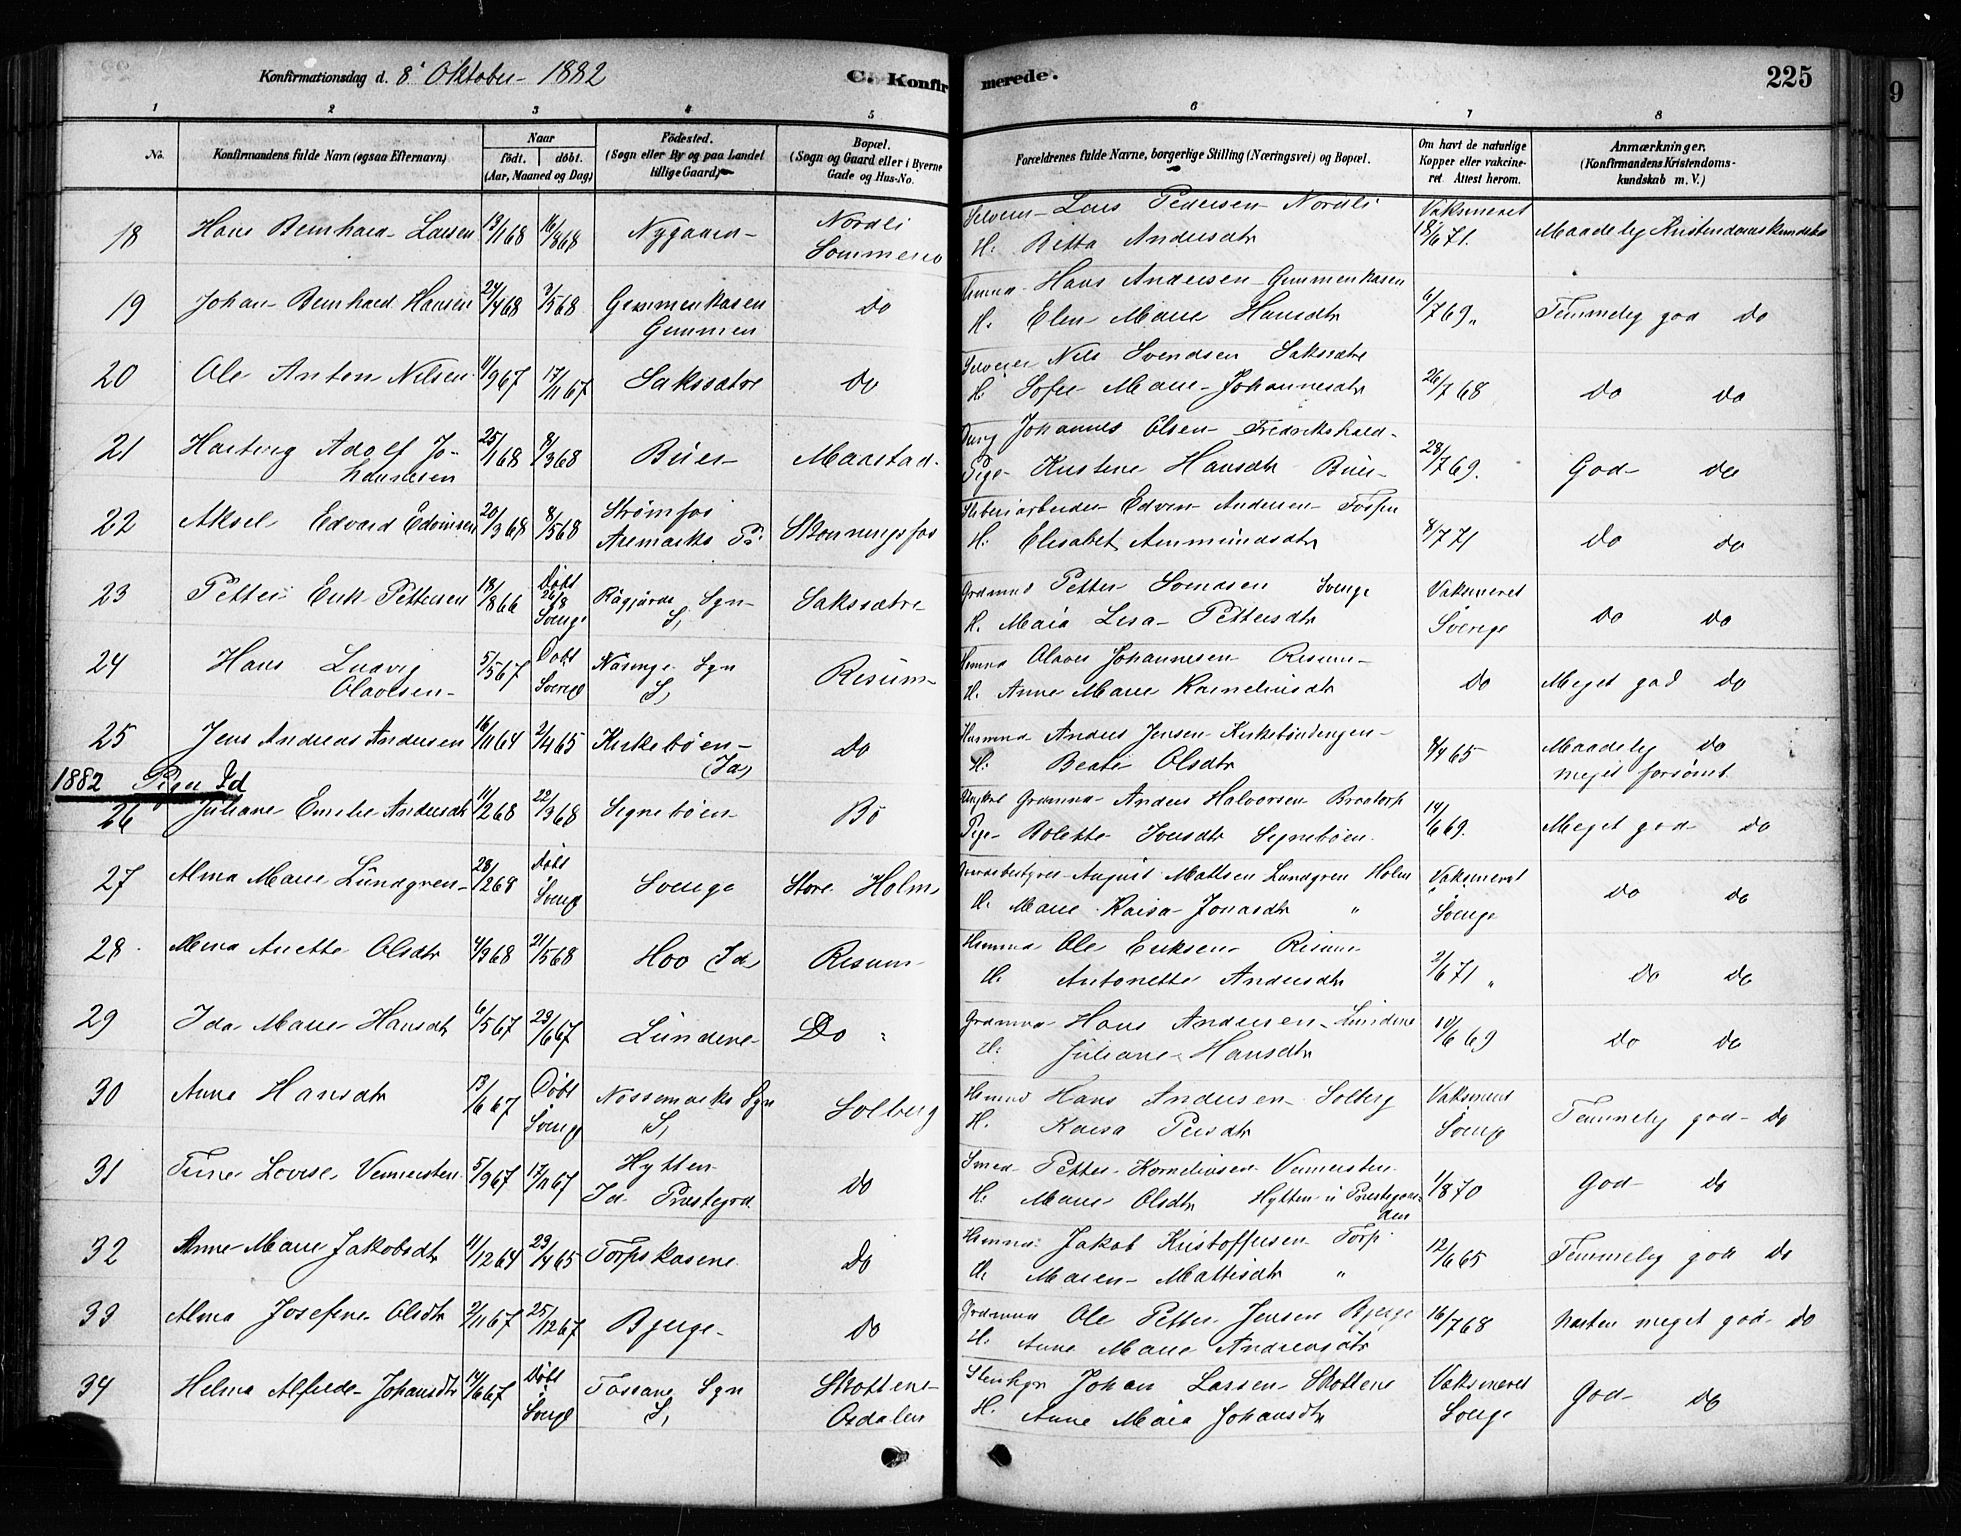 Konfirmationsdag d. 8' Oktober 1882 C. Konfirmerede. 225
1 2 3 4 5 6 7 8
No. Konfirmandens fulde Navn (ogsaa Efternavn) Naar født. døbt. (Aar, Maaned og Dag) Födested. (Sogn eller By og paa Landet tillige Gaard) Bopæl. (Sogn og Gaard eller i Byerne Gade og Hus-No. Forældrenes fulde Navne, borgerlige Stilling (Næringsvei) og Bopæl. Om havt de naturlige Kopper eller vakcineret. Attest herom. Anmærkninger. (Konfirmandens Kristendomskundskab m. V.)
18 Hans Bernhard Larsen 13/1 68 16/8 68 Nygaard Nordli Lars Pedersen Nordli Vaksineret 18/6 71. Maadelig Kristendomskundskab
H. Andersdtr
19 Johan Bernhard Hansen 24/4 68 3/5 68 Gummenkasen Do Hans Andersen Gummenkasen 6/7 69 Temmelig god do
Gummen H. Elen Marie Hansdtr
20 Ole Anton Nilsen 11/9 67 17/11 67 Saksætre Do Nils Svendsen Saksætre 26/7 68 do do
H. Sofie Marie Johannesdtr
21 Hartvig Adolf Johannesen 25/1 68 8/3 68 Buer Maastad Johannes Olsen Fredrikshald 28/7 69. God do
Pige Kristine Hansdtr Buer
22 Aksel Edvard Edvinsen 20/3 68 8/5 68 Strømsfos Skonningsfos Edvin Andersen Fosser 8/7 71 do do
Aremarks P: H: Elisabet Ammundsdtr
23 Petter Erik Pettersen 18/8 66 Døbt 26/8 Sverige Sgn S, Saksætre Grdmnd Petter Svendsen Sverige Vaksineret Sverige do do
H. Maia Lisa Pettersdtr
24 Hans Ludvig Olavesen 5/5 67 Døbt Sverige Näsinge Sgn S, Risum Olaves Johannesen Risum Do Meget god do
H. Anne Marie Kornelinsdtr
25 Jens Andreas Andersen 16/11 64 2/4 65 Kirkebøen (Id) Do Husmnd Anders Jensen 8/4 65 Maadelig do
H: Beate Olsdtr meget forsømt
1882 Piger Id
26 Juliane Emilie Andersdtr 11/2 68 22/3 68 Signebøen Bö Ungkrl Grdmnd Anders Halvorsen Braatorp 14/6 69. Meget god do
Pige Bolette Iversdtr Signebøen
27 Alma Marie Lundgren 28/12 68 døbt Sverige Sverige Store Holm August Mattsen Lundgren Holm Vaksineret Sverige do do
H. Marie Kaisa Jonasdtr "
28 Mina Anette Olsdtr 4/3 68 21/5 68 Hov (Id) Risum Ole Eriksen Risum 2/6 71 " do do
H. Antonette Andersdtr
29 Ida Marie Hansdtr 6/5 67 29/6 67 Lundene Do Grdmnd Hans Andersen Lundene 10/6 69 do do
H: Juliane Hansdtr
30 Anne Hansdtr 13/6 67 Døbt Sverige Nössemarks Sgn S, Solberg Hans Andersen Solberg Vaksineret Sverige Temmelig god do
H. Kaisa Persdtr
31 Lovise 5/9 67 17/11 67 Hytten Do Smed Petter Kornelinsen 1/8 70 God do
Id Præstegrd H. Marie Olsdtr Hytten u Præstegaarden
32 Anne Marie Jakobsdtr 11/12 64 23/4 65 Torpskasene Do Jakob Kristoffersen Torp 12/6 65 Temmelig god do
H. Maren Mattisdtr "
33 Alma Josefine Olsdtr 2/11 67 25/12 67 Bjerge Do Grdmnd Ole Petter Jensen Bjerge 16/7 68 næsten meget god do
H. Anne Marie Andreasdtr
34 Helma Alfrede Johansdtr 14/6 67 Døbt Sverige Fossane Sgn S, Skottene Johan Larsen Skottene Vaksineret Sverige God do
Asdalen H. Anne Maia Johansdtr
9